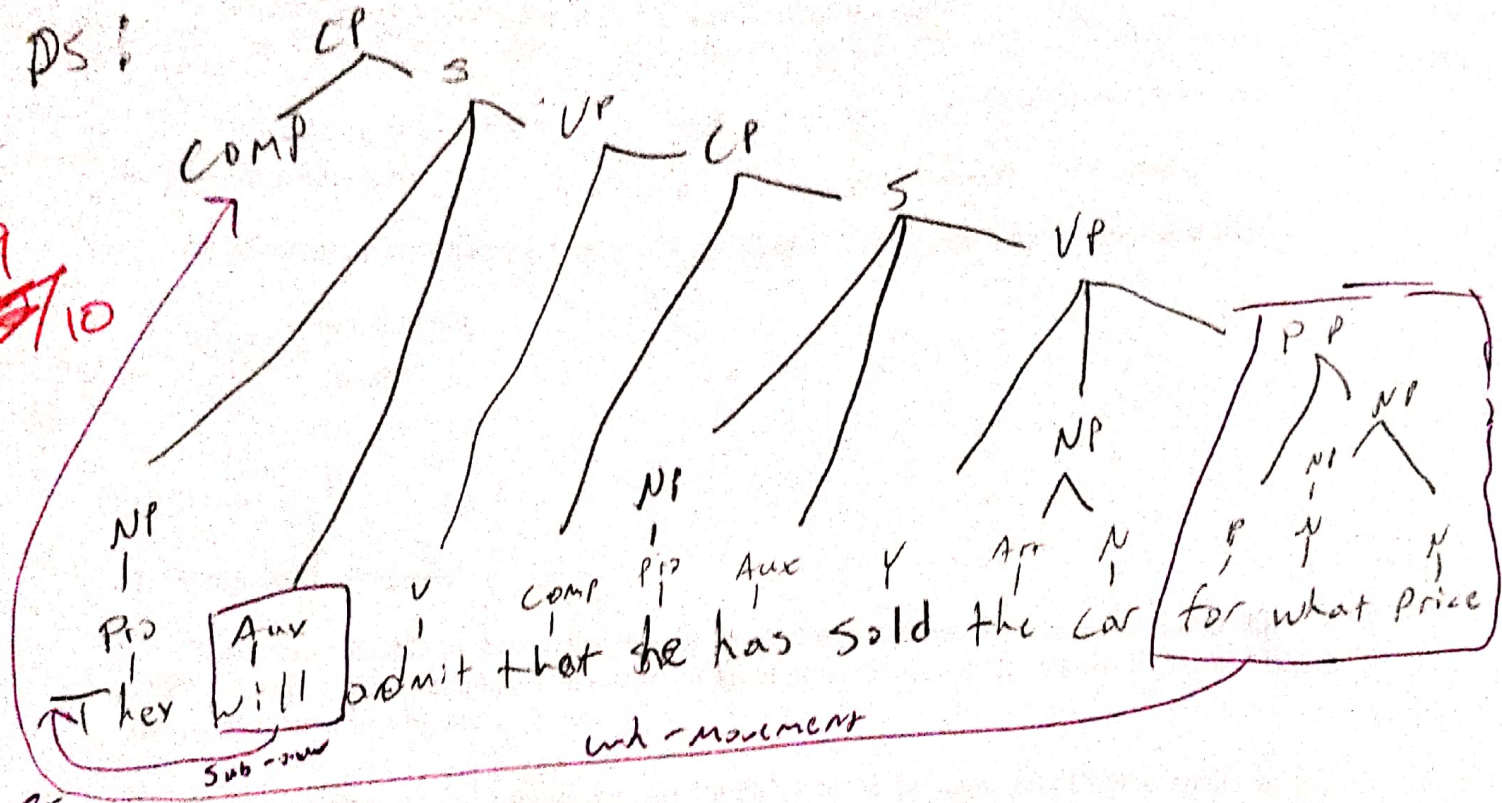 DS:
CP
S
COMP
VP
CP
S
VP
/10
PP
NP
NP
NP
NP
NP
Pro
Aux
V
COMP
Pro
Aux
V
Art
N
P
N
N
They will admit that he has sold the car for what price
wh-movement